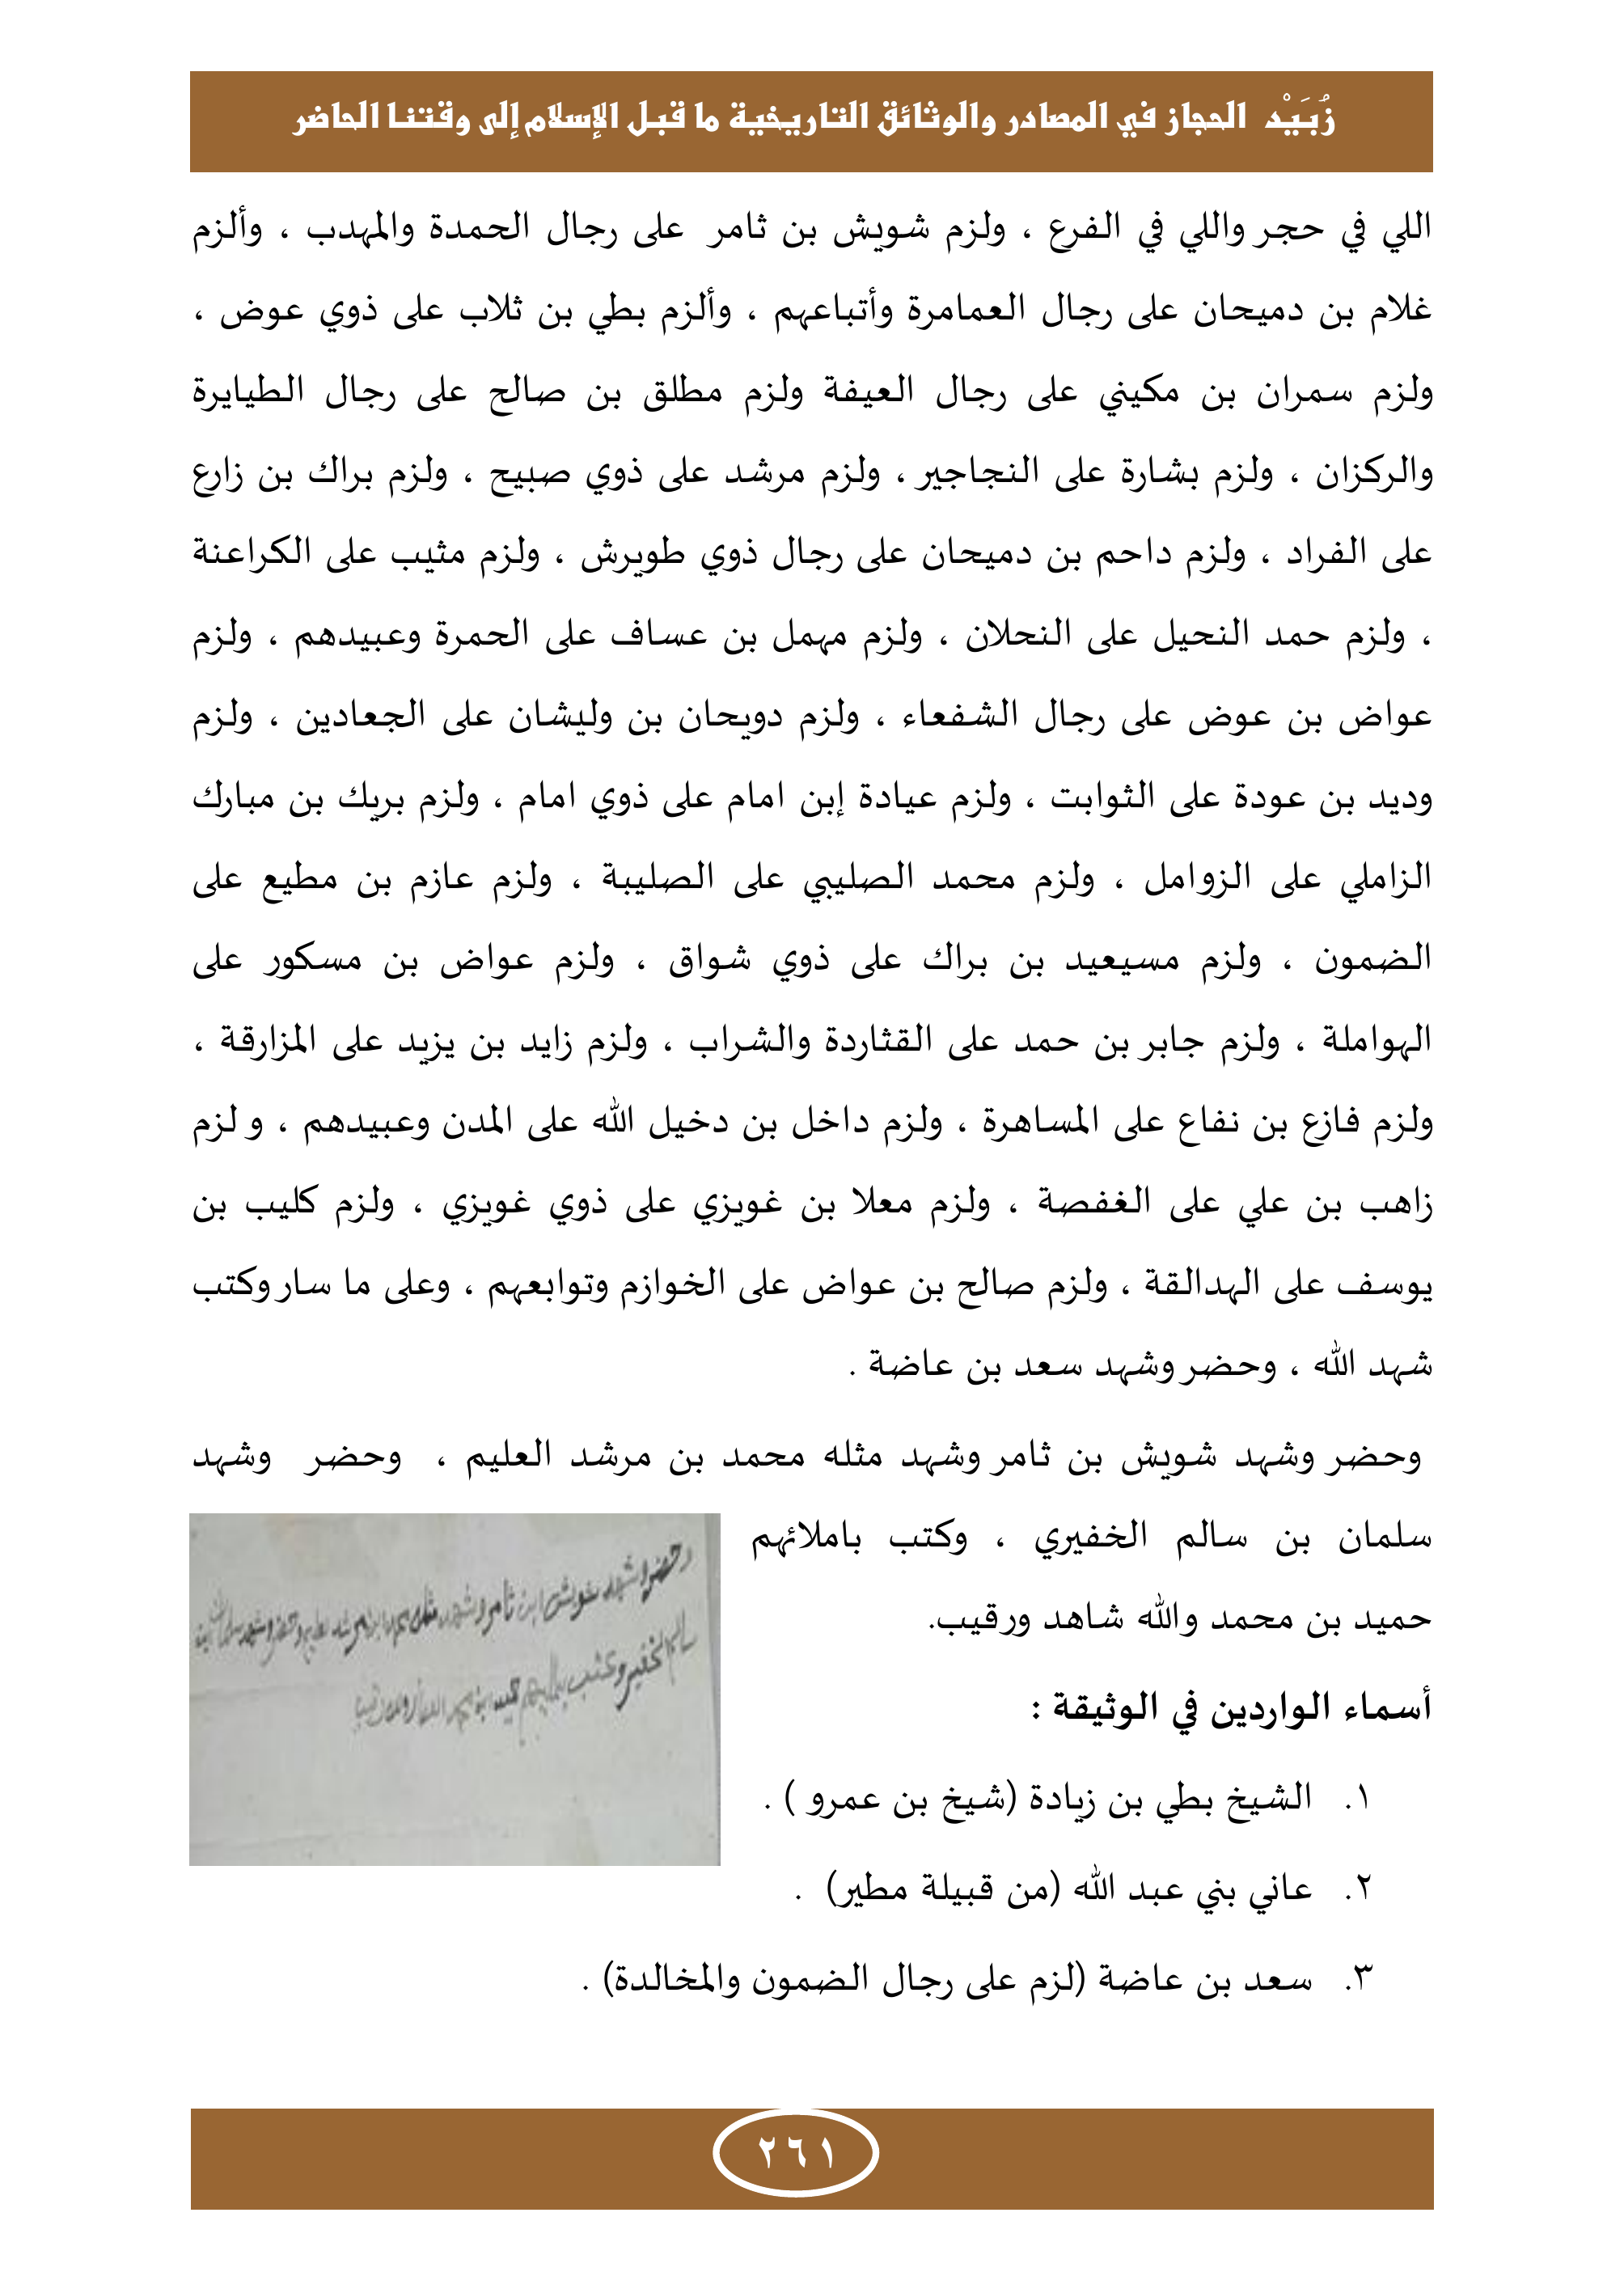 زُبَيْد الحجاز في المصادر والوثائق التاريخية ما قبل الإسلام إلى وقتنا الحاضر
اللي في حجر واللي في الفرع ، ولزم شويش بن ثامر على رجال الحمدة والمهدب ، وألزم
غلام بن دميحان على رجال العمامرة وأتباعهم ، وألزم بطي بن ثلاب على ذوي عوض ،
ولزم سمران بن مكيني على رجال العيفة ولزم مطلق بن صالح على رجال الطيايرة
والركزان ، ولزم بشارة على النجاجير ، ولزم مرشد على ذوي صبيح ، ولزم براك بن زارع
على الفراد ، ولزم داحم بن دميحان على رجال ذوي طويرش ، ولزم مثيب على الكراعنة
، ولزم حمد النحيل على النحلان ، ولزم مهمل بن عساف على الحمرة وعبيدهم ، ولزم
عواض بن عوض على رجال الشفعاء ، ولزم دويحان بن وليشان على الجعادين ، ولزم
وديد بن عودة على الثوابت ، ولزم عيادة إبن امام على ذوي امام ، ولزم بريك بن مبارك
الزاملي على الزوامل ، ولزم محمد الصليبي على الصليبة ، ولزم عازم بن مطيع على
الضمون ، ولزم مسيعيد بن براك على ذوي شواق ، ولزم عواض بن مسكور على
الهواملة ، ولزم جابر بن حمد على القثاردة والشراب ، ولزم زايد بن يزيد على المزارقة ،
ولزم فازع بن نفاع على المساهرة ، ولزم داخل بن دخيل الله على المدن وعبيدهم ، و لزم
زاهب بن علي على الغفصة ، ولزم معلا بن غويزي على ذوي غويزي ، ولزم كليب بن
يوسف على الهدالقة ، ولزم صالح بن عواض على الخوازم وتوابعهم ، وعلى ما سار وكتب
شهد الله ، وحضر وشهد سعد بن عاضة .
وحضر وشهد شويش بن ثامر وشهد مثله محمد بن مرشد العليم ، وحضر وشهد
سلمان بن سالم الخفيري ، وكتب باملائهم
حميد بن محمد والله شاهد ورقيب.
وحضر وشهد شويش ابن ثامر وشهد مثله
سالم الخفيري وكتب
أسماء الواردين في الوثيقة :
١. الشيخ بطي بن زيادة (شيخ بن عمرو ) .
٢. عاني بني عبد الله (من قبيلة مطير) .
٣. سعد بن عاضة (لزم على رجال الضمون والمخالدة) .
٢٦١